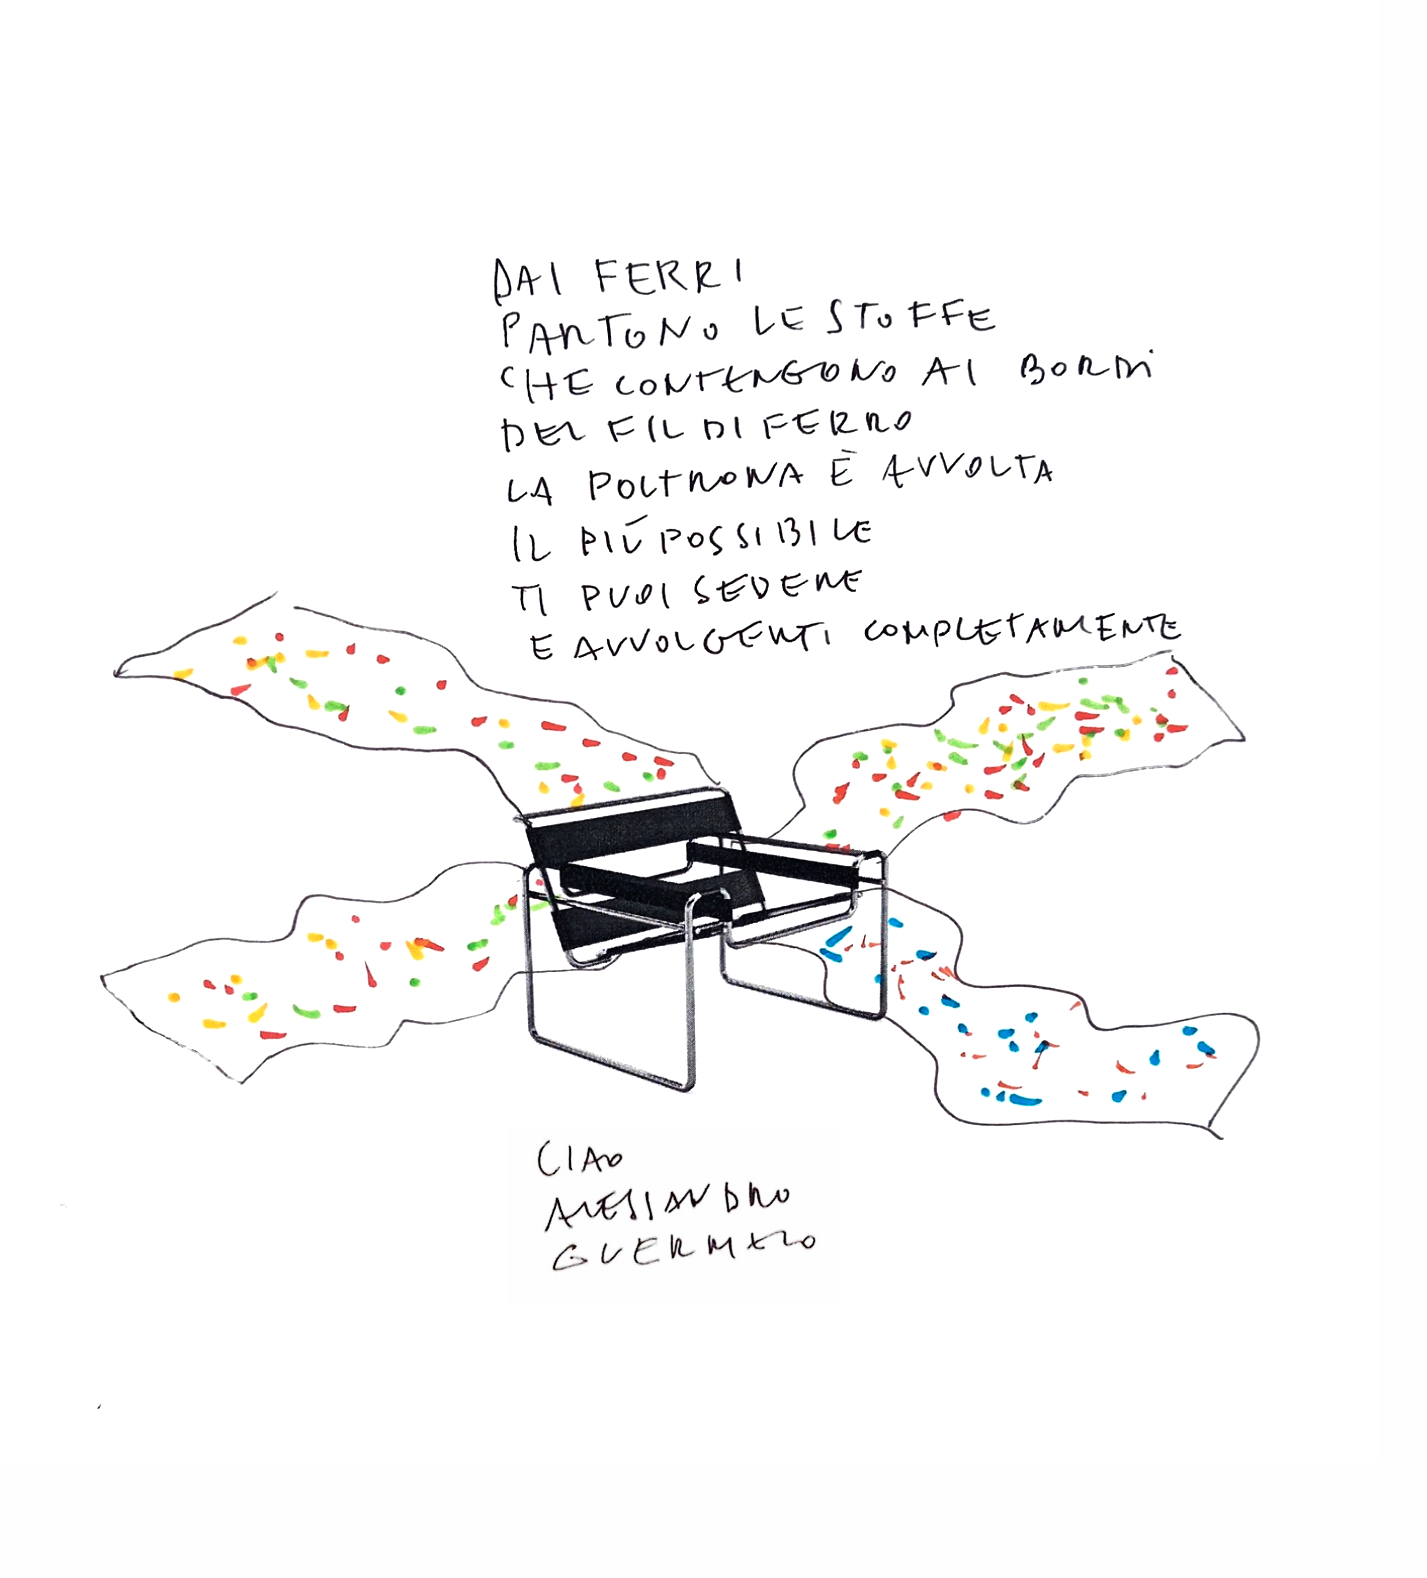 DAI FERRI
PARTONO LE STOFFE
CHE CONTENGONO AI BORDI
DEL FIL DI FERRO
LA POLTRONA È AVVOLTA
IL PIÙ POSSIBILE
TI PUOI SEDERE
E AVVOLGERTI COMPLETAMENTE
CIAO
ALESSANDRO